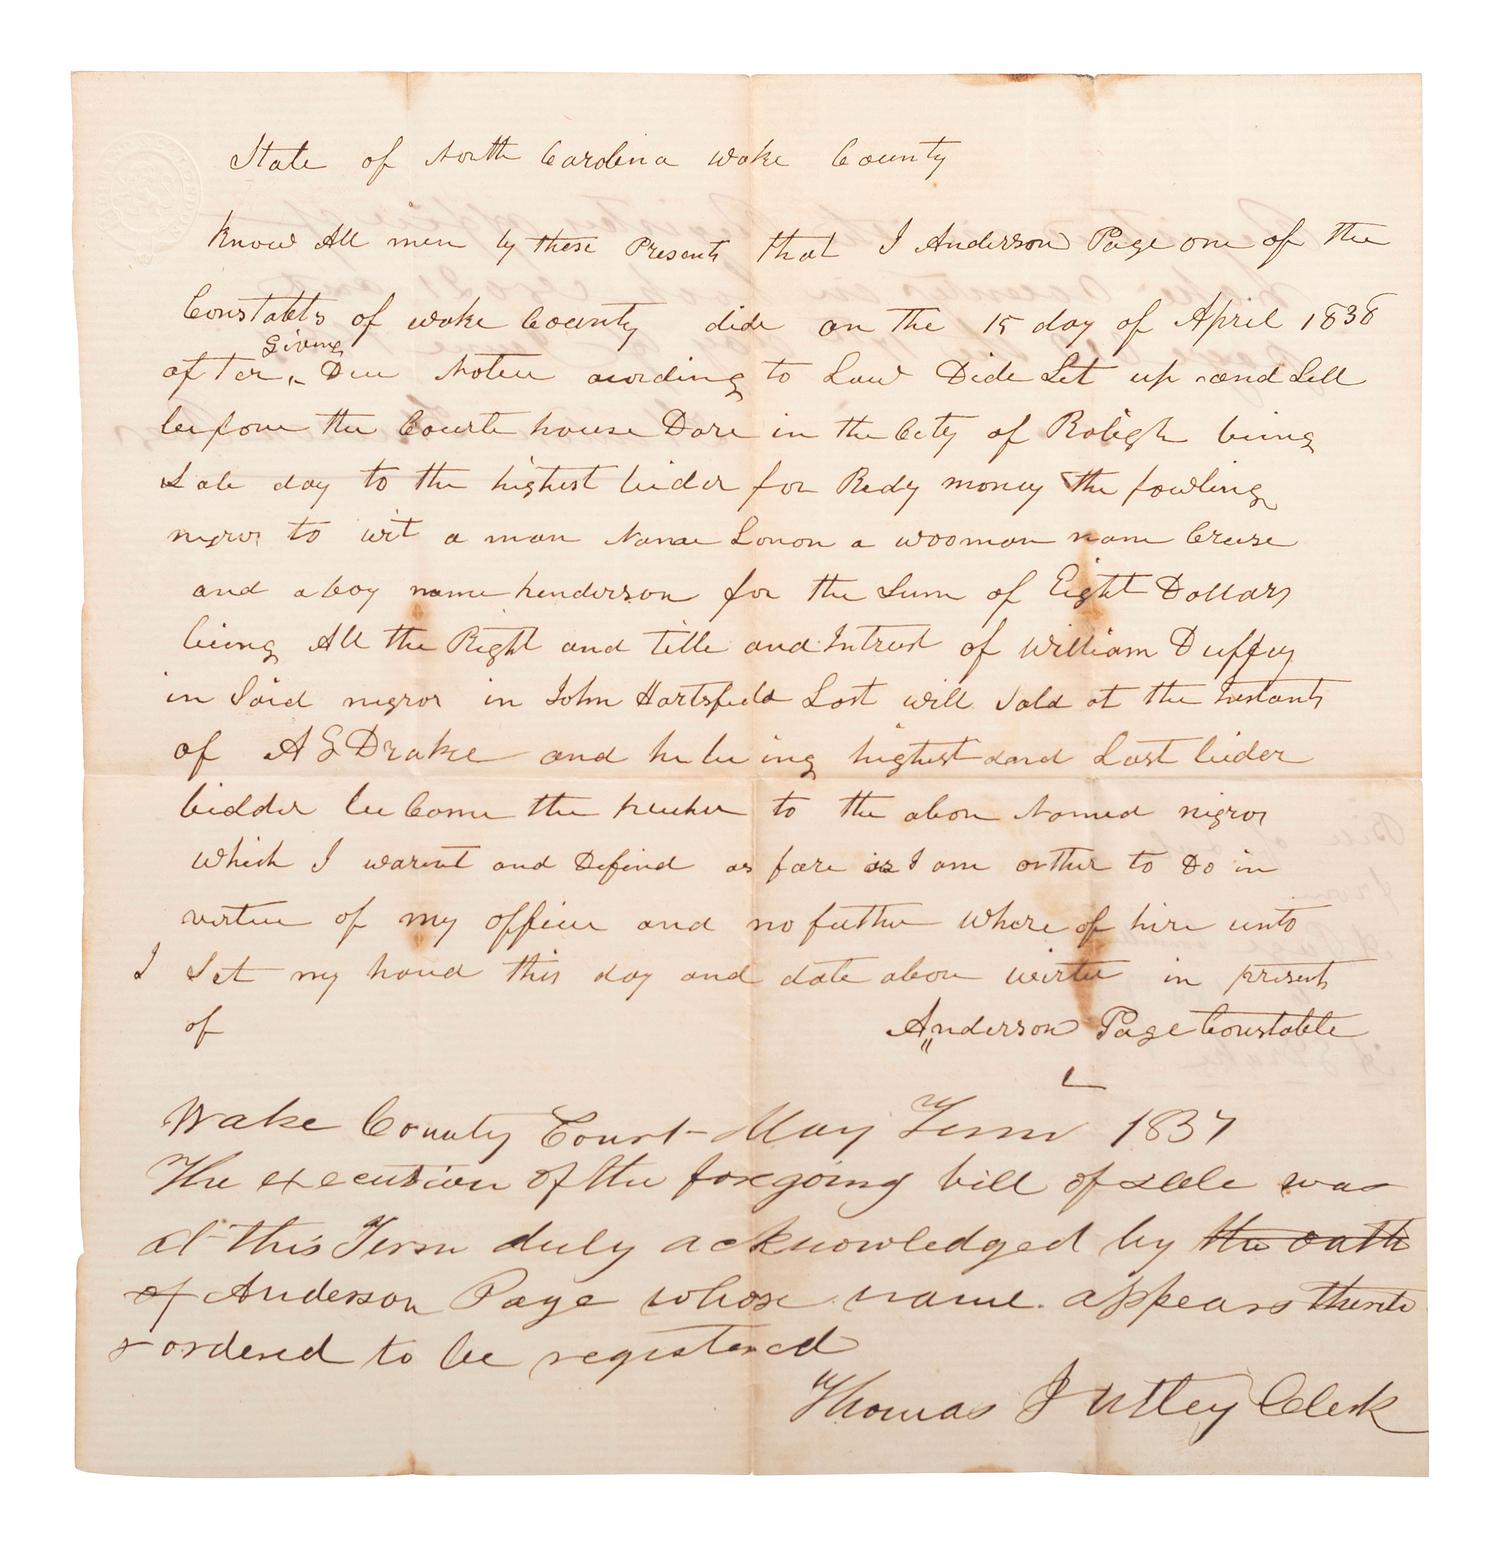 State of North Carolina Wake County
Know All men by these Presents that I Anderson Page one of the
Constabts of wake County did on the 15 day of April 1838
Giving
after ^ Due Notice acording to Law Dide Set up and Sell
before the Courte house Dore in the City of Raligh being
Sale day to the highest bider for Redy money the fowling
negros to wit a man Name Lonon a wooman name Crease
and a boy name henderson for the Sum of Eight Dollars
being All the Right and title and Intrust of William Duffey
in Said negros in John Hartsfield Last will Sold at the Instants
of A G Drake and he being highest and Last bider
bidder be Come the to the above Named negros
which I warent and Defend as fare as I am orther to Do in
virtue of my office and no futher where of hire unto
I Set my hand this day and date above wirten in presents
of Anderson Page Constable
Wake County Court May Term 1837
The execution of the foregoing bill of sale was
at this Term duly acknowledged by the oath
of Anderson Page whose name appears thereto
& ordered to be registered
Thomas J Utley Clerk